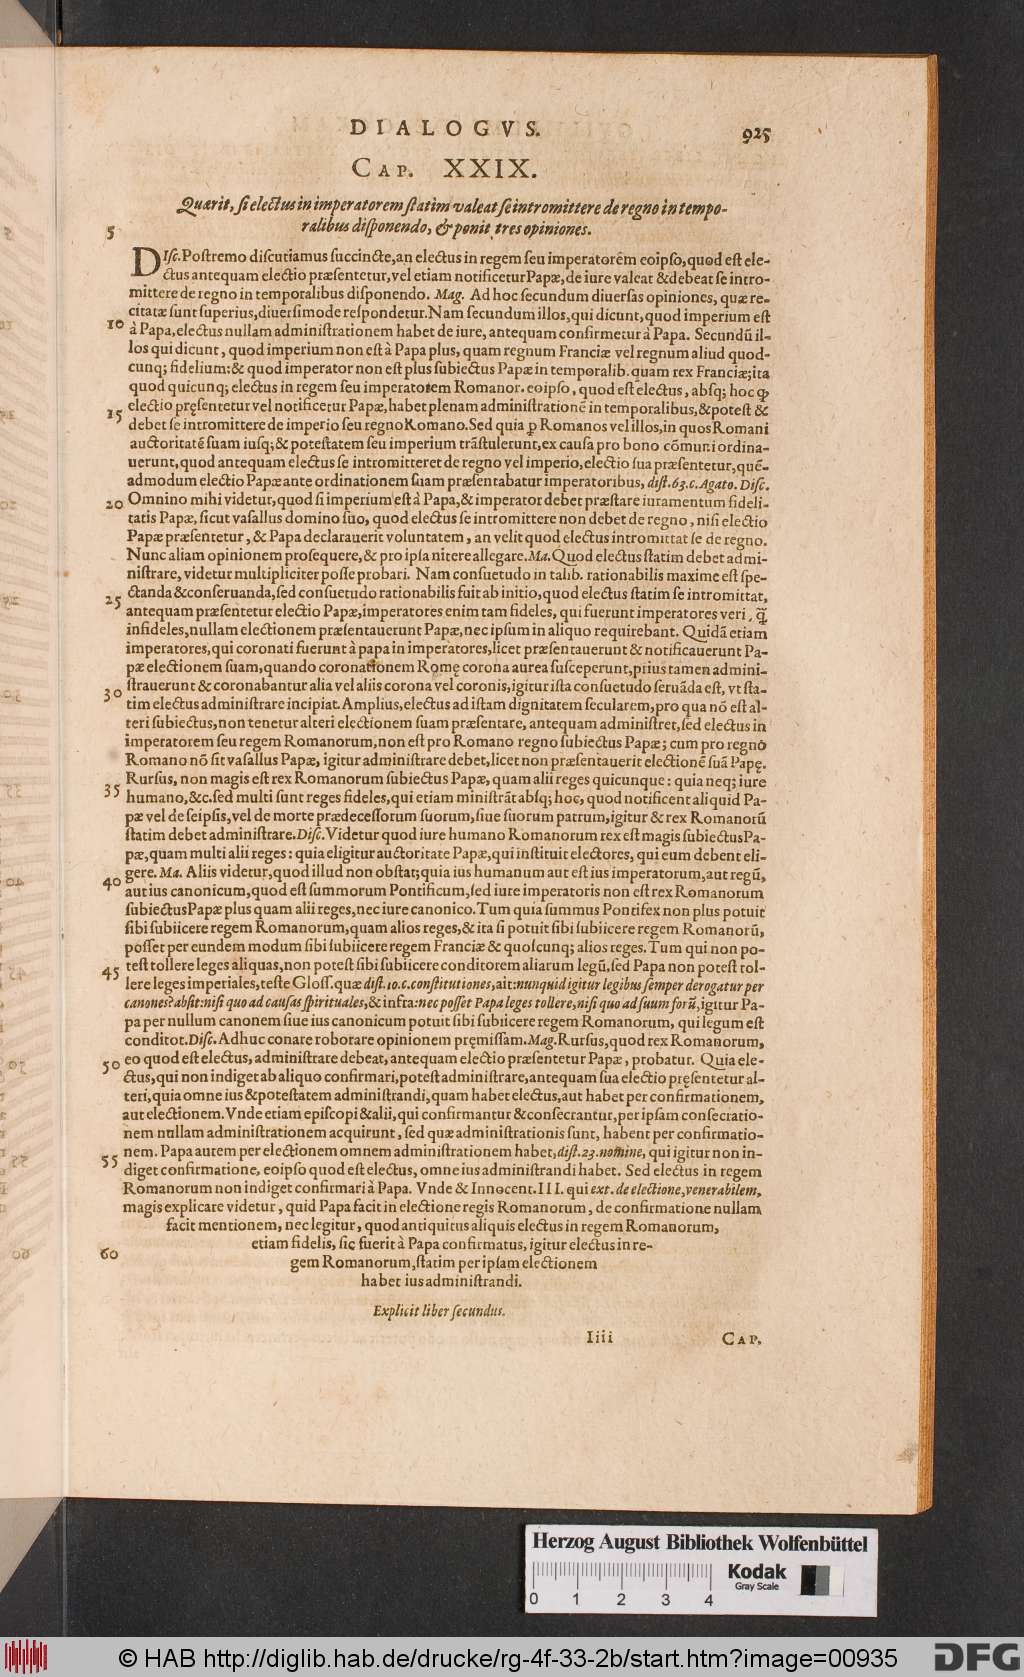 DIALOGVS. 925
CAP. XXIX.
Quærit, si electus in imperatorem statim valeat se intromittere de regno in tempo-
5 ralibus disponendo, & ponit tres opiniones.
DIsc. Postremo discutiamus succincte, an electus in regem seu imperatorẽm eoipso, quod est ele-
ctus antequam electio præsentetur, vel etiam notificetur Papæ, de iure valeat & debeat se intro-
mittere de regno in temporalibus disponendo. Mag. Ad hoc secundum diuersas opiniones, quæ re-
citatæ sunt superius, diuersimode respondetur. Nam secundum illos, qui dicunt, quod imperium est
10 à Papa, electus nullam administrationem habet de iure, antequam confirmetur à Papa. Secundũ il-
los qui dicunt, quod imperium non est à Papa plus, quam regnum Franciæ vel regnum aliud quod-
cunq; fidelium: & quod imperator non est plus subiectus Papæ in temporalib. quam rex Franciæ; ita
quod quicunq; electus in regem seu imperatorem Romanor. eoipso, quod est electus, absq; hoc ꝙ
electio pręsentetur vel notificetur Papæ, habet plenam administrationẽ in temporalibus, & potest &
15 debet se intromittere de imperio seu regno Romano. Sed quia ꝑ Romanos vel illos, in quos Romani
auctoritatẽ suam iusq; & potestatem seu imperium trãstulerunt, ex causa pro bono cõmuni ordina-
uerunt, quod antequam electus se intromitteret de regno vel imperio, electio sua præsentetur, quẽ-
admodum electio Papæ ante ordinationem suam præsentabatur imperatoribus, dist. 63. c. Agato. Disc.
20 Omnino mihi videtur, quod si imperium est à Papa, & imperator debet præstare iuramentum fideli-
tatis Papæ, sicut vasallus domino suo, quod electus se intromittere non debet de regno, nisi electio
Papæ præsentetur, & Papa declarauerit voluntatem, an velit quod electus intromittat se de regno.
Nunc aliam opinionem prosequere, & pro ipsa nitere allegare. Ma. Quod electus statim debet admi-
nistrare, videtur multipliciter posse probari. Nam consuetudo in talib. rationabilis maxime est spe-
25 ctanda & conseruanda, sed consuetudo rationabilis fuit ab initio, quod electus statim se intromittat,
antequam præsentetur electio Papæ, imperatores enim tam fideles, qui fuerunt imperatores veri, q̃
infideles, nullam electionem præsentauerunt Papæ, nec ipsum in aliquo requirebant. Quidã etiam
imperatores, qui coronati fuerunt à papa in imperatores, licet præsentauerunt & notificauerunt Pa-
pæ electionem suam, quando coronationem Romę corona aurea susceperunt, prius tamen admini-
30 strauerunt & coronabantur alia vel aliis corona vel coronis, igitur ista consuetudo seruãda est, vt sta-
tim electus administrare incipiat. Amplius, electus ad istam dignitatem secularem, pro qua nõ est al-
teri subiectus, non tenetur alteri electionem suam præsentare, antequam administret, sed electus in
imperatorem seu regem Romanorum, non est pro Romano regno subiectus Papæ; cum pro regno
Romano nõ sit vasallus Papæ, igitur administrare debet, licet non præsentauerit electionẽ suã Papę.
35 Rursus, non magis est rex Romanorum subiectus Papæ, quam alii reges quicunque: quia neq; iure
humano, &c. sed multi sunt reges fideles, qui etiam ministrãt absq; hoc, quod notificent aliquid Pa-
pæ vel de seipsis, vel de morte prædecessorum suorum, siue suorum patrum, igitur & rex Romanorũ
statim debet administrare. Disc. Videtur quod iure humano Romanorum rex est magis subiectus Pa-
pæ, quam multi alii reges: quia eligitur auctoritate Papæ, qui instituit electores, qui eum debent eli-
40 gere. Ma. Aliis videtur, quod illud non obstat; quia ius humanum aut est ius imperatorum, aut regũ,
aut ius canonicum, quod est summorum Pontificum, sed iure imperatoris non est rex Romanorum
subiectus Papæ plus quam alii reges, nec iure canonico. Tum quia summus Pontifex non plus potuit
sibi subiicere regem Romanorum, quam alios reges, & ita si potuit sibi subiicere regem Romanorũ,
posset per eundem modum sibi subiicere regem Franciæ & quoscunq; alios reges. Tum qui non po-
45 test tollere leges aliquas, non potest sibi subiicere conditorem aliarum legũ, sed Papa non potest tol-
lere leges imperiales, teste Gloss. quæ dist. 10. c. constitutiones, ait: nunquid igitur legibus semper derogatur per
canones? absit: nisi quo ad causas spirituales, & infra: nec posset Papa leges tollere, nisi quo ad suum forũ, igitur Pa-
pa per nullum canonem siue ius canonicum potuit sibi subiicere regem Romanorum, qui legum est
conditor. Disc. Adhuc conare roborare opinionem pręmissam. Mag. Rursus, quod rex Romanorum,
50 eo quod est electus, administrare debeat, antequam electio præsentetur Papæ, probatur. Quia ele-
ctus, qui non indiget ab aliquo confirmari, potest administrare, antequam sua electio pręsentetur al-
teri, quia omne ius & potestatem administrandi, quam habet electus, aut habet per confirmationem,
aut electionem. Vnde etiam episcopi & alii, qui confirmantur & consecrantur, per ipsam consecratio-
nem nullam administrationem acquirunt, sed quæ administrationis sunt, habent per confirmatio-
55 nem. Papa autem per electionem omnem administrationem habet, dist. 23. nomine, qui igitur non in-
diget confirmatione, eoipso quod est electus, omne ius administrandi habet. Sed electus in regem
Romanorum non indiget confirmari à Papa. Vnde & Innocent. III. qui ext. de electione, venerabilem,
magis explicare videtur, quid Papa facit in electione regis Romanorum, de confirmatione nullam
facit mentionem, nec legitur, quod antiquitus aliquis electus in regem Romanorum,
60 etiam fidelis, sic fuerit à Papa confirmatus, igitur electus in re-
gem Romanorum, statim per ipsam electionem
habet ius administrandi.
Explicit liber secundus.
Iiii CAP.
Herzog August Bibliothek Wolfenbüttel
0 1 2 3 4
Kodak
Gray Scale
© HAB http://diglib.hab.de/drucke/rg-4f-33-2b/start.htm?image=00935
DFG